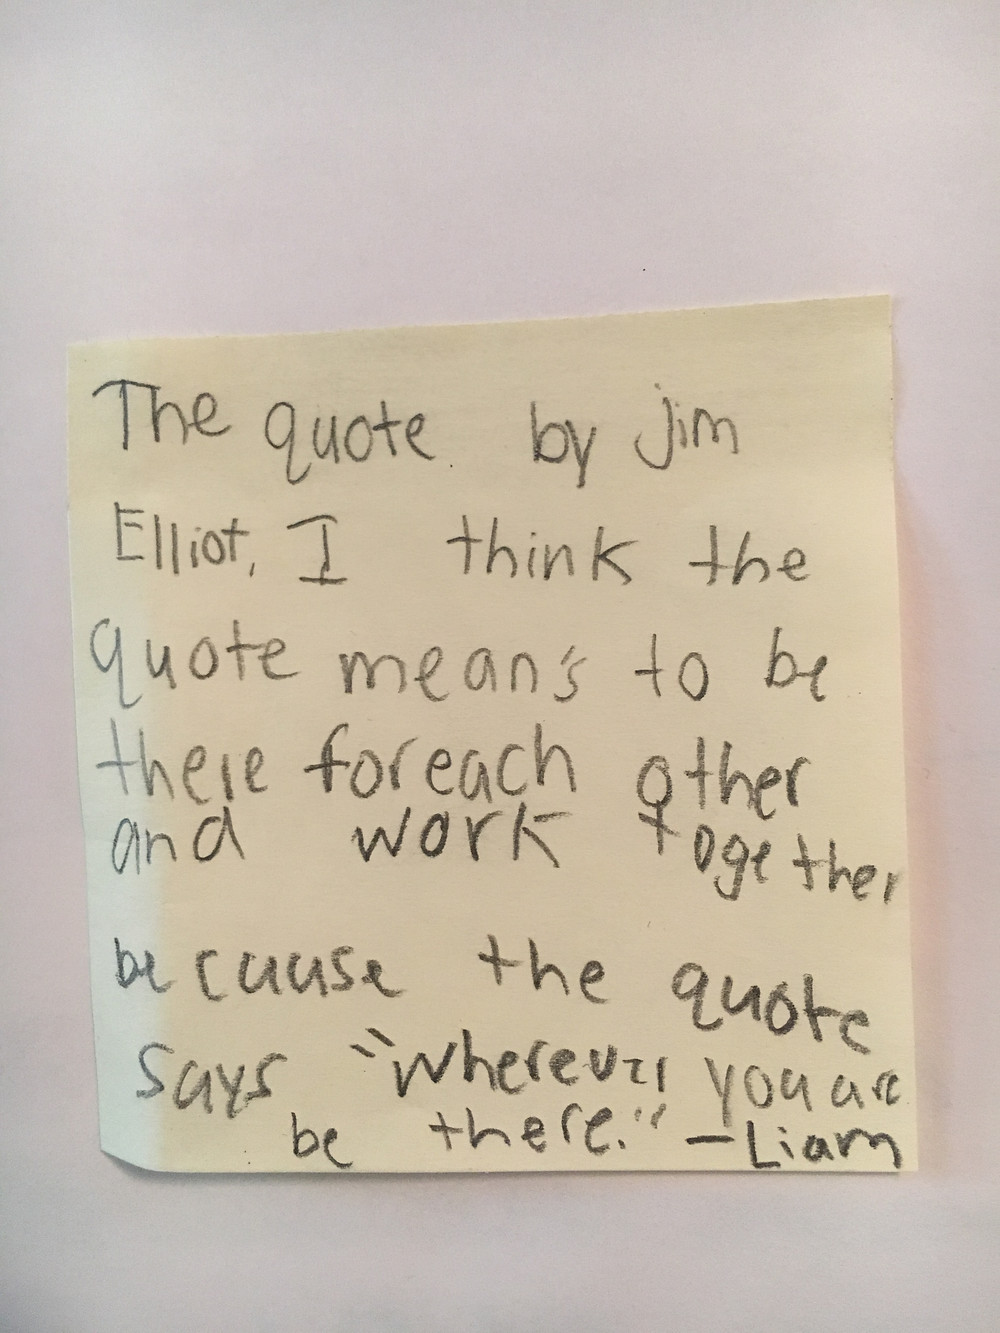 The quote by jim
Elliot, I think the
quote mean's to be
there foreach other
and work together
becuuse the quote
says "Wherever you are
be there." -Liam